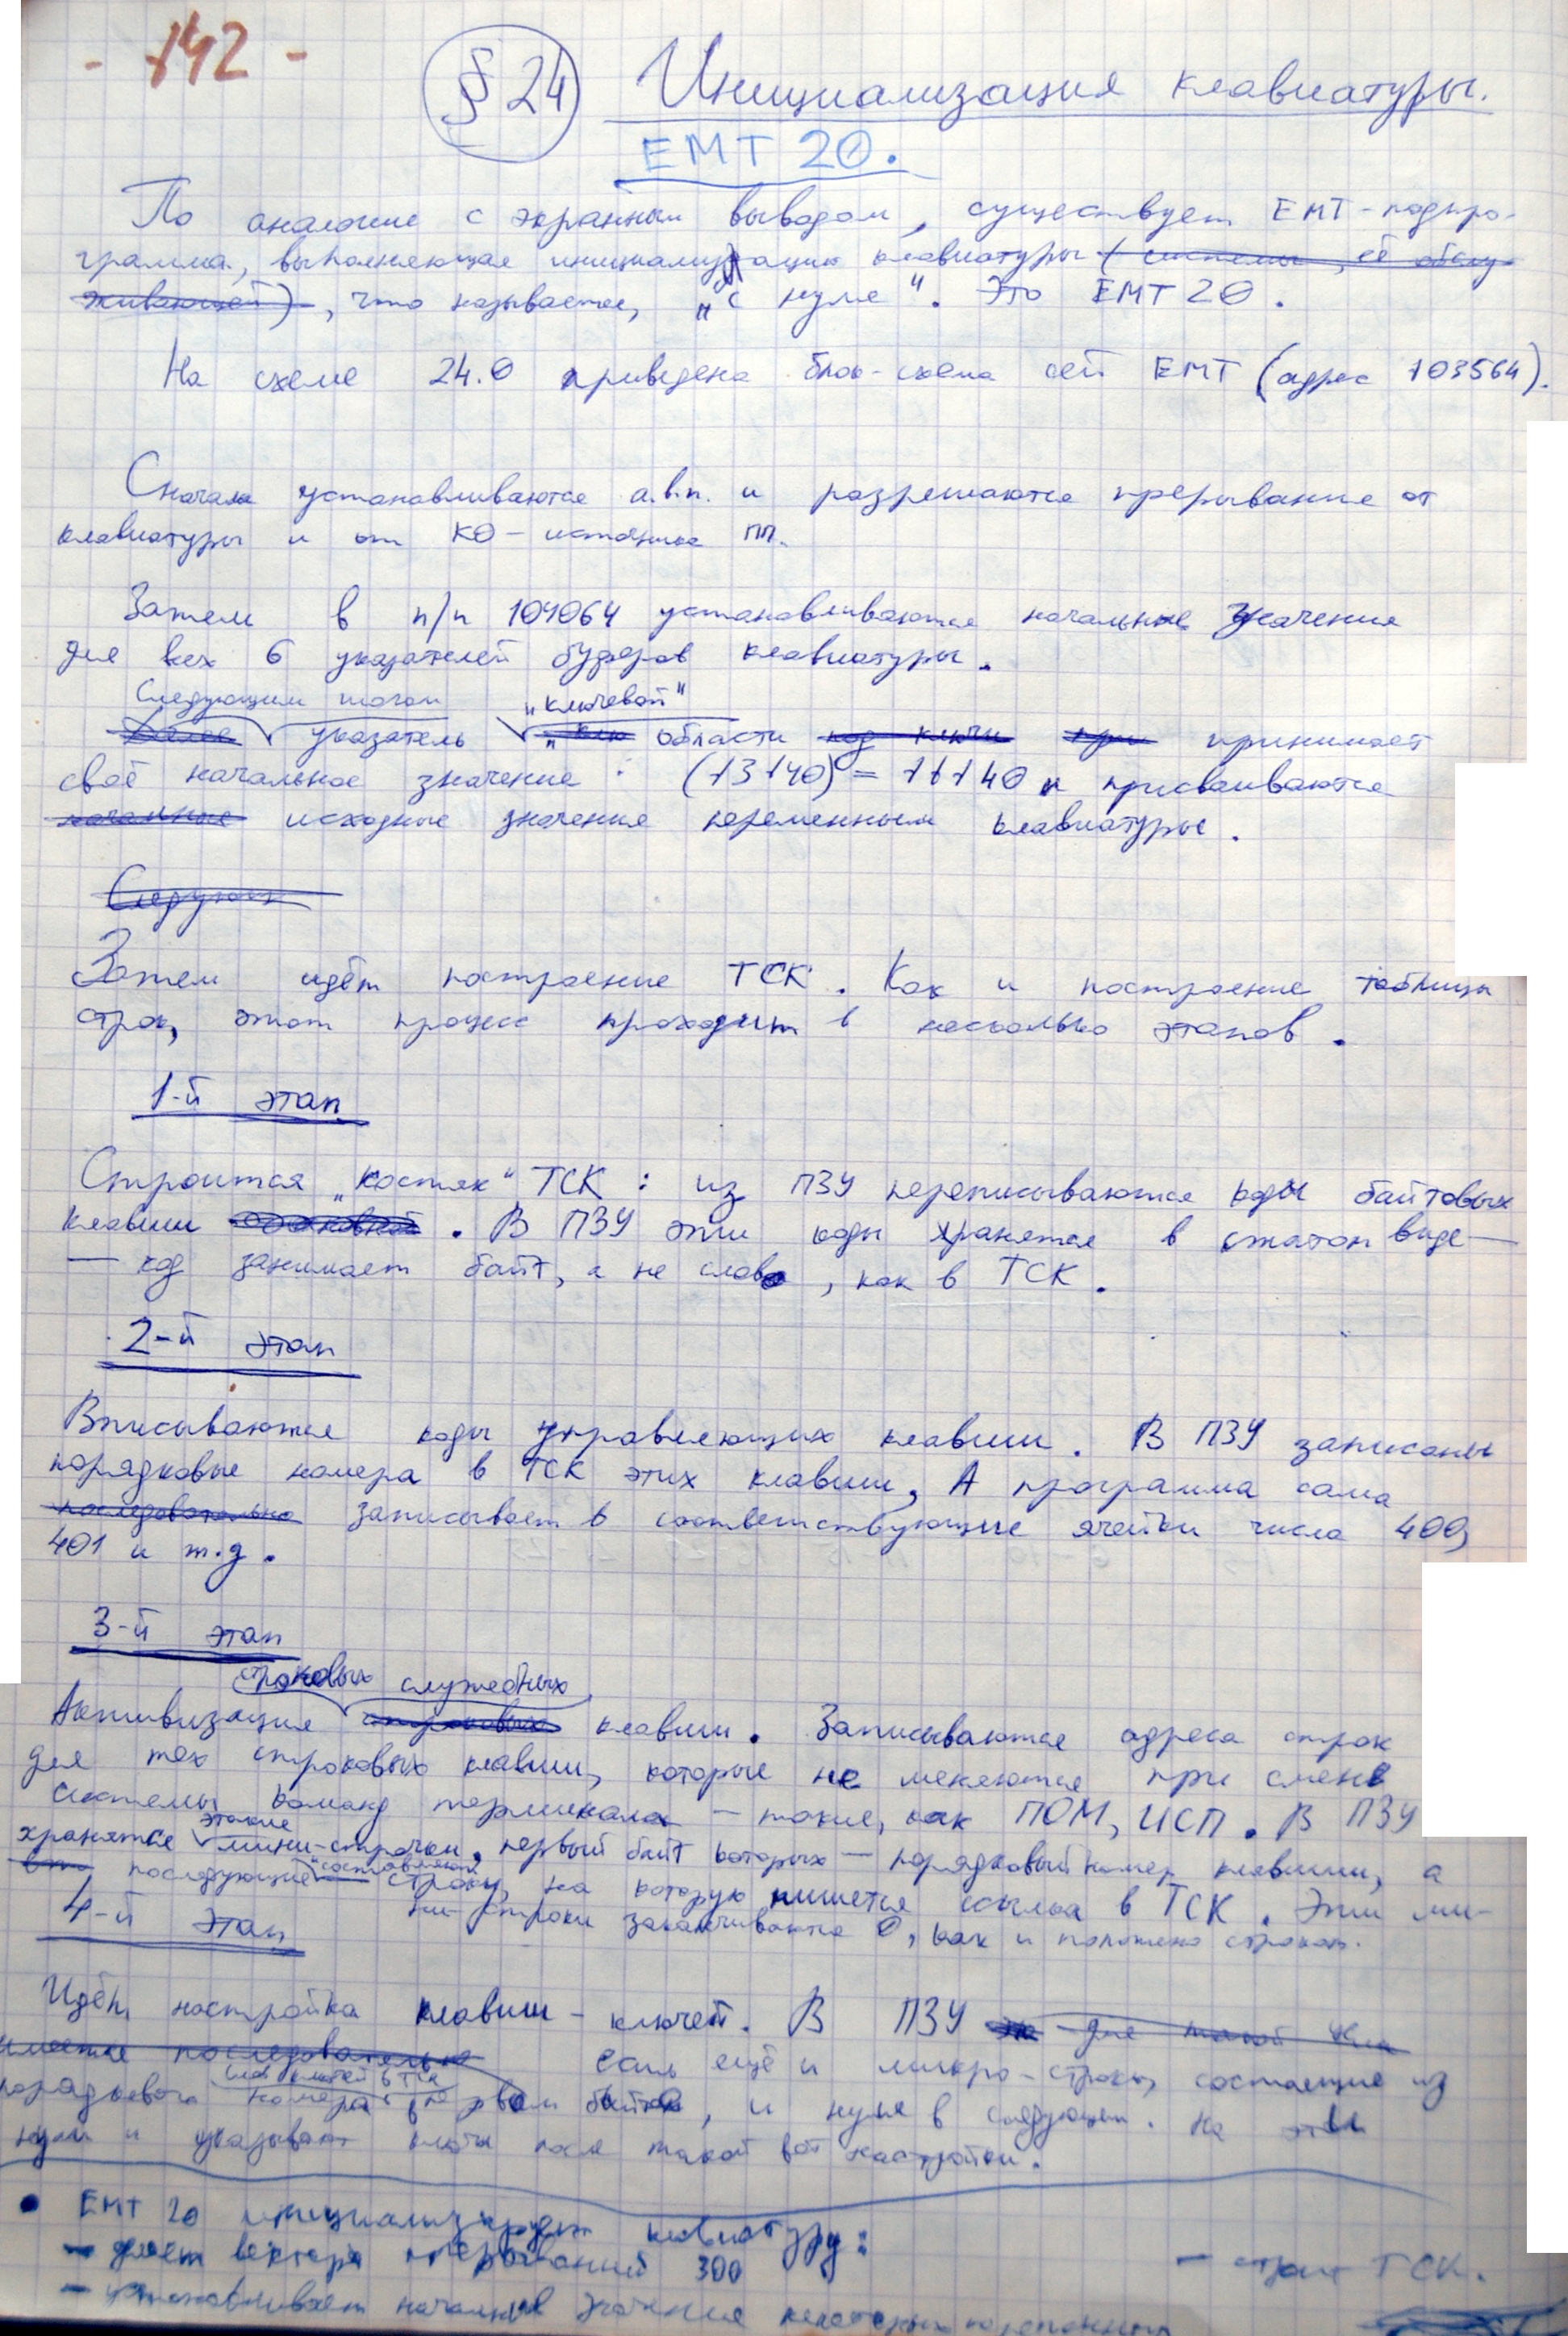 - 142 -
§ 24 Инициализация клавиатуры.
ЕМТ 20.
По аналогии с экранным выводом, существует ЕМТ-подпро-
грамма, выполняющая инициализацию клавиатуры (системы, её обслу-
живающей), что называется, „с нуля". Это ЕМТ 20.
На схеме 24.0 приведена блок-схема сей ЕМТ (адрес 103564).
Сначала устанавливаются а.в.п. и разрешаются прерывание от
клавиатуры и от К0 - источника ПП.
Затем в п/п 104064 устанавливаются начальные значения
для всех 6 указателей буферов клавиатуры.
Следующим шагом „ключевой"
Далее указатель области код ключи при принимает
своё начальное значение : (13140) = 11140 и присваиваются
начальные исходные значения переменным клавиатуры.
Следующ
Затем идёт построение ТСК. Как и построение таблицы
строк, этот процесс проходит в несколько этапов.
1-й этап
Строится „костяк" ТСК : из ПЗУ переписываются коды байтовых
клавиш основной. В ПЗУ эти коды хранятся в сжатом виде —
— код занимает байт, а не слово, как в ТСК.
2-й этап
Вписываются коды управляющих клавиш. В ПЗУ записаны
порядковые номера в ТСК этих клавиш, А программа сама
последовательно записывает в соответствующие ячейки числа 400,
401 и т.д.
3-й этап
строковых служебных
Активизация строковых клавиш. Записываются адреса строк
для тех строковых клавиш, которые не меняются при смене
системы команд терминала — такие, как ПОМ, ИСП. В ПЗУ
этакие
хранятся мини-строчки, первый байт которых — порядковый номер клавиши, а
составляют
последующие строку, на которую пишется ссылка в ТСК. Эти ми-
4-й этап ни-строки заканчиваются 0, как и положено строкам.
Идёт настройка клавиш - ключей. В ПЗУ для такой
имеется последовательно есть ещё и микро-строки, состоящие из
порядкового номера в первом байте, и нуля в следующем. На эти
нули и указывают ключи после такой вот настройки.
• ЕМТ 20 инициализирует клавиатуру:
- делает вектора прерываний 300 - строит ТСК.
- устанавливает начальные значения некоторых переменных